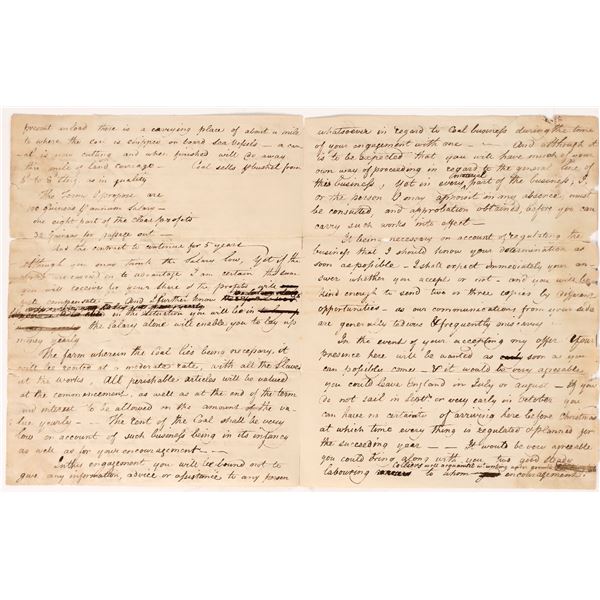 present inland there is a carrying place of about a mile
to where the coal is shipped on board sea vessels - a ca-
nal is now cutting and when finished will do away
this mile of land carriage - Coal sells bushel from
as in quality
The Terms I propose are
100 guineas annum Salary
one eight part of the clear profits
32 Guineas for passage out -
And the contract to continue for 5 years
Although you may think the Salary low, yet if the
is carried on to advantage I am certain the sum
you will receive for your share of the profits will
compensate - And I further know
in the situation you will be in
the Salary alone will enable you to lay up
money yearly
The farm wherein the Coal lies being necessary, it
will be rented at a moderate rate, with all the Slaves
at the works. All perishable articles will be valued
at the commencement, as well as at the end of the term
and interest to be allowed in the amount of the va-
lue yearly - The rent of the Coal shall be very
low on account of such business being in its infancy
as well as for your encouragement -
In this engagement, you will be bound not to
give any information, advice or assistance to any person
whatsoever in regard to Coal business during the time
of your engagement with me - And although it
is to be expected that you will have much of your
own way of proceeding in regard to the general line of
this business, yet in every part of the business, I,
or the person I may appoint in my absence must
be consulted, and approbation obtained, before you can
carry such works into effect -
It being necessary on account of regulating the
business that I should know your determination as
soon as possible - I shall expect immediately your an-
swer whether you accept or not - and you will be
kind enough to send two or three copies by different
opportunities - as our communications from your side
are generally tedious & frequently miscarry -
In the event of your accepting my offer Your
Presence here will be wanted as soon as you
can possibly come - & it would be very agreeable
you could leave England in July or August - If you
do not sail in Septr. or very early in October you
can have no certainty of arriving here before Christmas
at which time every thing is regulated & planned for
the succeeding year - It would be very agreeable
you could bring along with you two good steady
Colliers well acquainted wt. working upon
labouring to whom encouragement